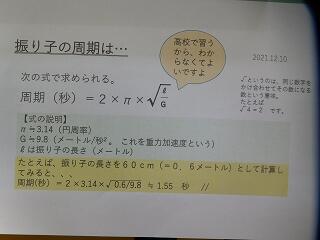 振り子の周期は…
高校で習う
から、わか
らなくてよ
いですよ
2021.12.10
√というのは、同じ数字を
かけ合わせてその数になる
数という意味。
たとえば
√4=2 です。
次の式で求められる。
周期(秒)=2×π×√ℓ/G
【式の説明】
π≒3.14(円周率)
G≒9.8(メートル/秒²。これを重力加速度という)
ℓは振り子の長さ(メートル)
たとえば、振り子の長さを60cm(=0.6メートル)として計算し
てみると、、、
周期(秒)=2×3.14×√0.6/9.8 ≒1.55 秒 //